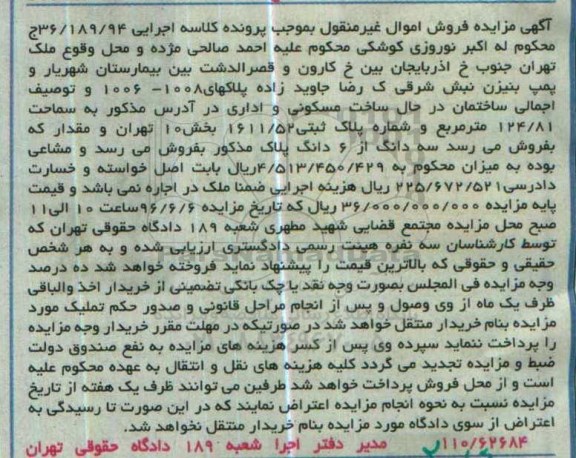 آگهی مزایده فروش اموال غیرمنقول بموجب پرونده کلاسه اجرایی ۳۶/۱۸۹/۹۴ج
محکوم له اکبر نوروزی کوشکی محکوم علیه احمد صالحی مژده و محل وقوع ملک
تهران جنوب خ اذربایجان بین خ کارون و قصرالدشت بین بیمارستان شهریار و
پمپ بنیزن نبش شرقی ک رضا جاوید زاده پلاکهای۱۰۰۸- ۱۰۰۶ و توصیف
اجمالی ساختمان در حال ساخت مسکونی و اداری در آدرس مذکور به سماحت
۱۲۴/۸۱ مترمربع و شماره پلاک ثبتی۱۶۱۱/۵۲ بخش۱۰ تهران و مقدار که
بفروش می رسد سه دانگ از ۶ دانگ پلاک مذکور بفروش می رسد و مشاعی
بوده به میزان محکوم به ۴/۵۱۳/۴۵۰/۴۲۹ریال بابت اصل خواسته و خسارت
دادرسی۲۲۵/۶۷۲/۵۲۱ ریال هزینه اجرایی ضمنا ملک در اجاره نمی باشد و قیمت
پایه مزایده ۳۶/۰۰۰/۰۰۰/۰۰۰ ریال که تاریخ مزایده ۹۶/۶/۶ساعت ۱۰ الی۱۱
صبح محل مزایده مجتمع قضایی شهید مطهری شعبه ۱۸۹ دادگاه حقوقی تهران که
توسط کارشناسان سه نفره هیئت رسمی دادگستری ارزیابی شده و به هر شخص
حقیقی و حقوقی که بالاترین قیمت را پیشنهاد نماید فروخته خواهد شد ده درصد
وجه مزایده فی المجلس بصورت وجه نقد یا چک بانکی تضمینی از خریدار اخذ والباقی
ظرف یک ماه از وی وصول و پس از انجام مراحل قانونی و صدور حکم تملیک مورد
مزایده بنام خریدار منتقل خواهد شد در صورتیکه در مهلت مقرر خریدار وجه مزایده
را پرداخت ننماید سپرده وی پس از کسر هزینه های مزایده به نفع صندوق دولت
ضبط و مزایده تجدید می گردد کلیه هزینه های نقل و انتقال به عهده محکوم علیه
است و از محل فروش پرداخت خواهد شد طرفین می توانند ظرف یک هفته از تاریخ
مزایده نسبت به نحوه انجام مزایده اعتراض نمایند که در این صورت تا رسیدگی به
اعتراض از سوی دادگاه مورد مزایده بنام خریدار منتقل نخواهد شد.
۱۱۰/۶۲۶۸۴ مدیر دفتر اجرا شعبه ۱۸۹ دادگاه حقوقی تهران